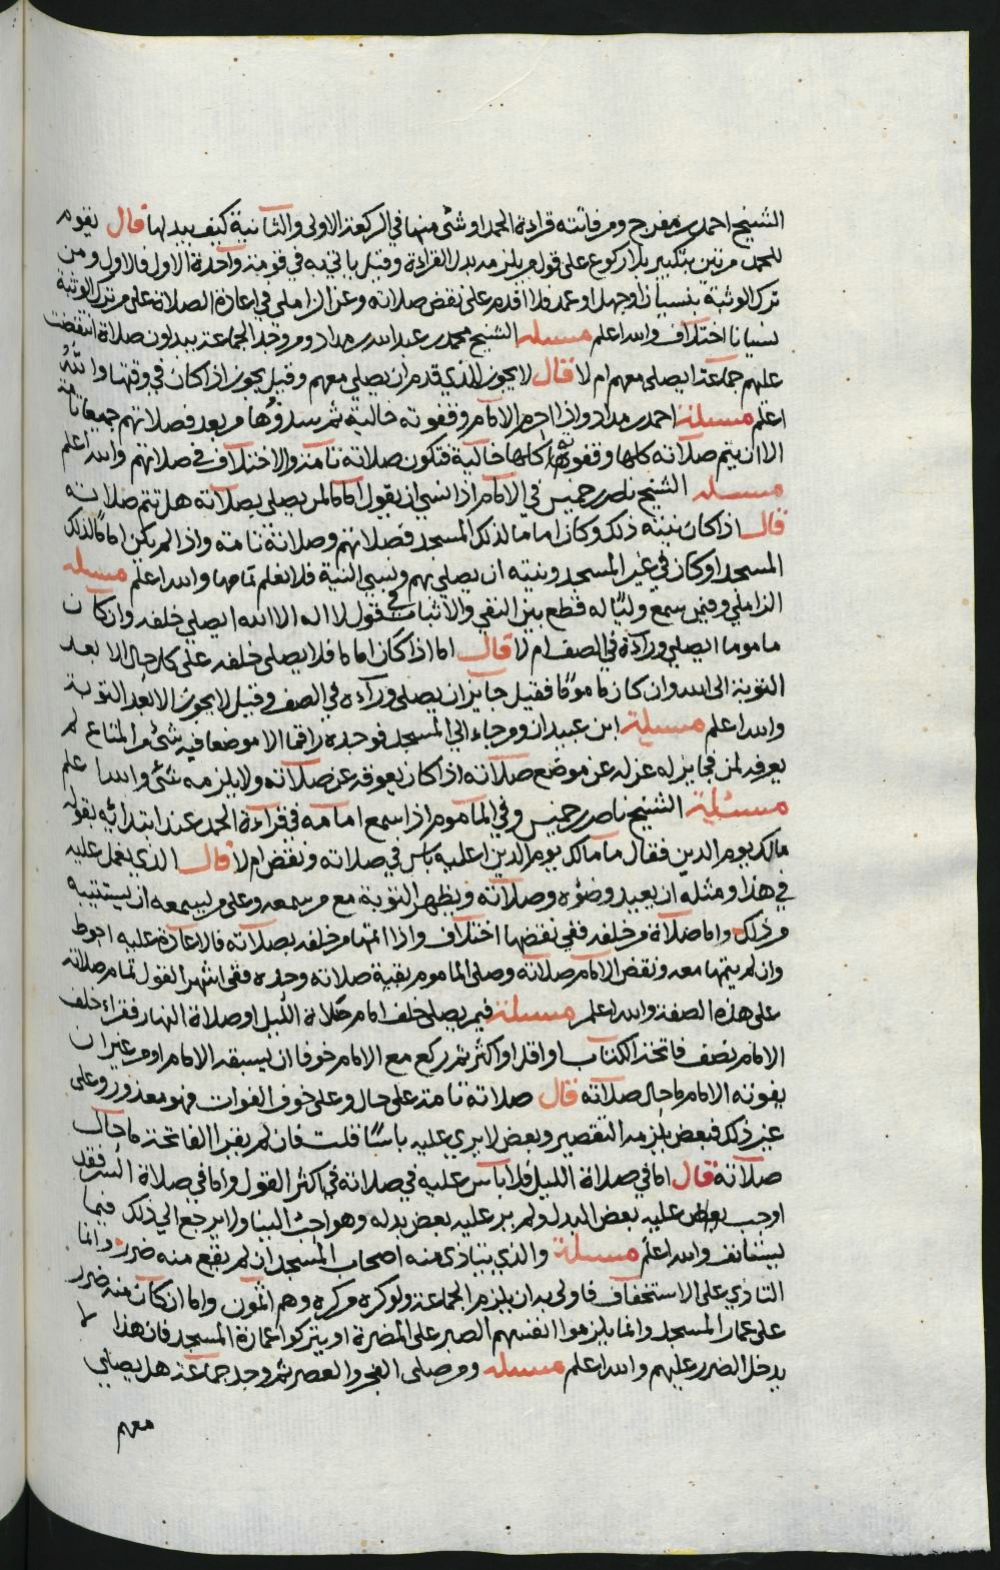 الشيخ احمد بن مفرج ومن فاتته قراءة الحمد او شئ منها في الركعة الاولى والثانية كيف يبدلها قال يقوم
للحمد مرتين بتكبير بلا ركوع على قول من يلزمه بدل القراءة وقيل ياتي به في قومة واحدة الاول فالاول ومن
ترك الوثبة بنسيان او جهل او عمد فلا اقدم على نقض صلاته وعن الزاملي في اعادة الصلاة على من ترك الوثبة
نسيانا اختلاف والله اعلم مسئله الشيخ محمد بن عبدالله بن مداد ومن وجد الجماعة يبدلون صلاة انتقضت
عليهم جماعة ايصلي معهم ام لا قال لا يجوز للذي قدم ان يصلي معهم وقيل يجوز اذا كان في وقتها والله
اعلم مسئلة احمد بن مداد واذا احرم الامام وقفوته خالية ثم سدوها من بعد فصلاتهم جميعا تامة
الا ان يتم صلاته كلها وقفوته كلها خالية فتكون صلاته تامة والاختلاف في صلاتهم والله اعلم
مسئله الشيخ ناصر بن خميس في الامام اذا نسي ان يقول اماما لمن يصلي بصلاته هل تتم صلاته
قال اذا كان نيته ذلك وكان اماما لذلك المسجد فصلاتهم وصلاته تامة واذا لم يكن اماما لذلك
المسجد او كان في غير المسجد ونيته ان يصلي بهم ونسي النية فلا نعلم تمامها والله اعلم مسئله
الزاملي وفيمن سمع وليا له قطع بين النفي والاثبات في قول لا اله الا الله ايصلي خلفه وان كان
ماموما ايصلي وراءه في الصف ام لا قال اما اذا كان اماما فلا يصلى خلفه على كل حال الا بعد
التوبة الى الله وان كان ماموما فقيل جايز ان يصلي وراءه في الصف وقيل لا يجوز الا بعد التوبة
والله اعلم مسيلة ابن عبيدان ومن جاء الى المسجد فوجده راقما الا موضعا فيه شئ من المتاع لم
يعرفه لمن فجايز له عزله عن موضع صلاته اذا كان يعوقه عن صلاته ولا يلزمه شئ والله اعلم
مسئلة الشيخ ناصر بن خميس وفي الماموم اذا سمع امامه في قراءة الحمد عند ابتدائه بقوله
مالك يوم الدين فقال ما مالك يوم الدين اعليه باس في صلاته ونقض ام لا قال الذي يعمل عليه
في هذا ومثله ان يعيد وضوءه وصلاته ويظهر التوبة مع من سمعه وعلى من يسمعه ان يستتيبه
من ذلك واما صلاة من خلفه ففي نقضها اختلاف واذا اتمها من خلفه بصلاته فالاعادة عليه احوط
وان لم يتمها معه ونقض الامام صلاته وصلى الماموم بقية صلاته وحده ففي اشهر القول تمام صلاته
على هذه الصفة والله اعلم مسئلة فيمن يصلي خلف امام صلاة الليل او صلاة النهار فقراء خلف
الامام نصف فاتحة الكتاب او اقل او اكثر ثم ركع مع الامام خوفا ان يسبقه الامام او من غير ان
يفوته الامام ما حال صلاته قال صلاته تامة على حال وعلى خوف الفوات فهو معذور وعلى
غير ذلك فبعض يلزمه التقصير وبعض لا يرى عليه باسا قلت فان لم يقرا الفاتحة ما حال
صلاته قال اما في صلاة الليل فلا باس عليه في صلاته في اكثر القول واما في صلاة السر فقد
اوجب بعض عليه بعض البدل ولم ير عليه بعض بدله وهو احب الينا ولا يرجع الى ذلك فيما
يستانف والله اعلم مسئلة والذي يتاذى منه اصحاب المسجد ان لم يقع منه ضرر وانما
التاذي على الاستخفاف فاولى به ان يلزم الجماعة ولو كره من كره وهم اثمون واما ان كان منه ضرر
على عمار المسجد وانما يلزموا انفسهم الصبر على المضرة او يتركوا عمارة المسجد فان هذا لا
يدخل الضرر عليهم والله اعلم مسئله ومن صلى الفجر والعصر ثم وجد جماعة هل يصلي
معهم